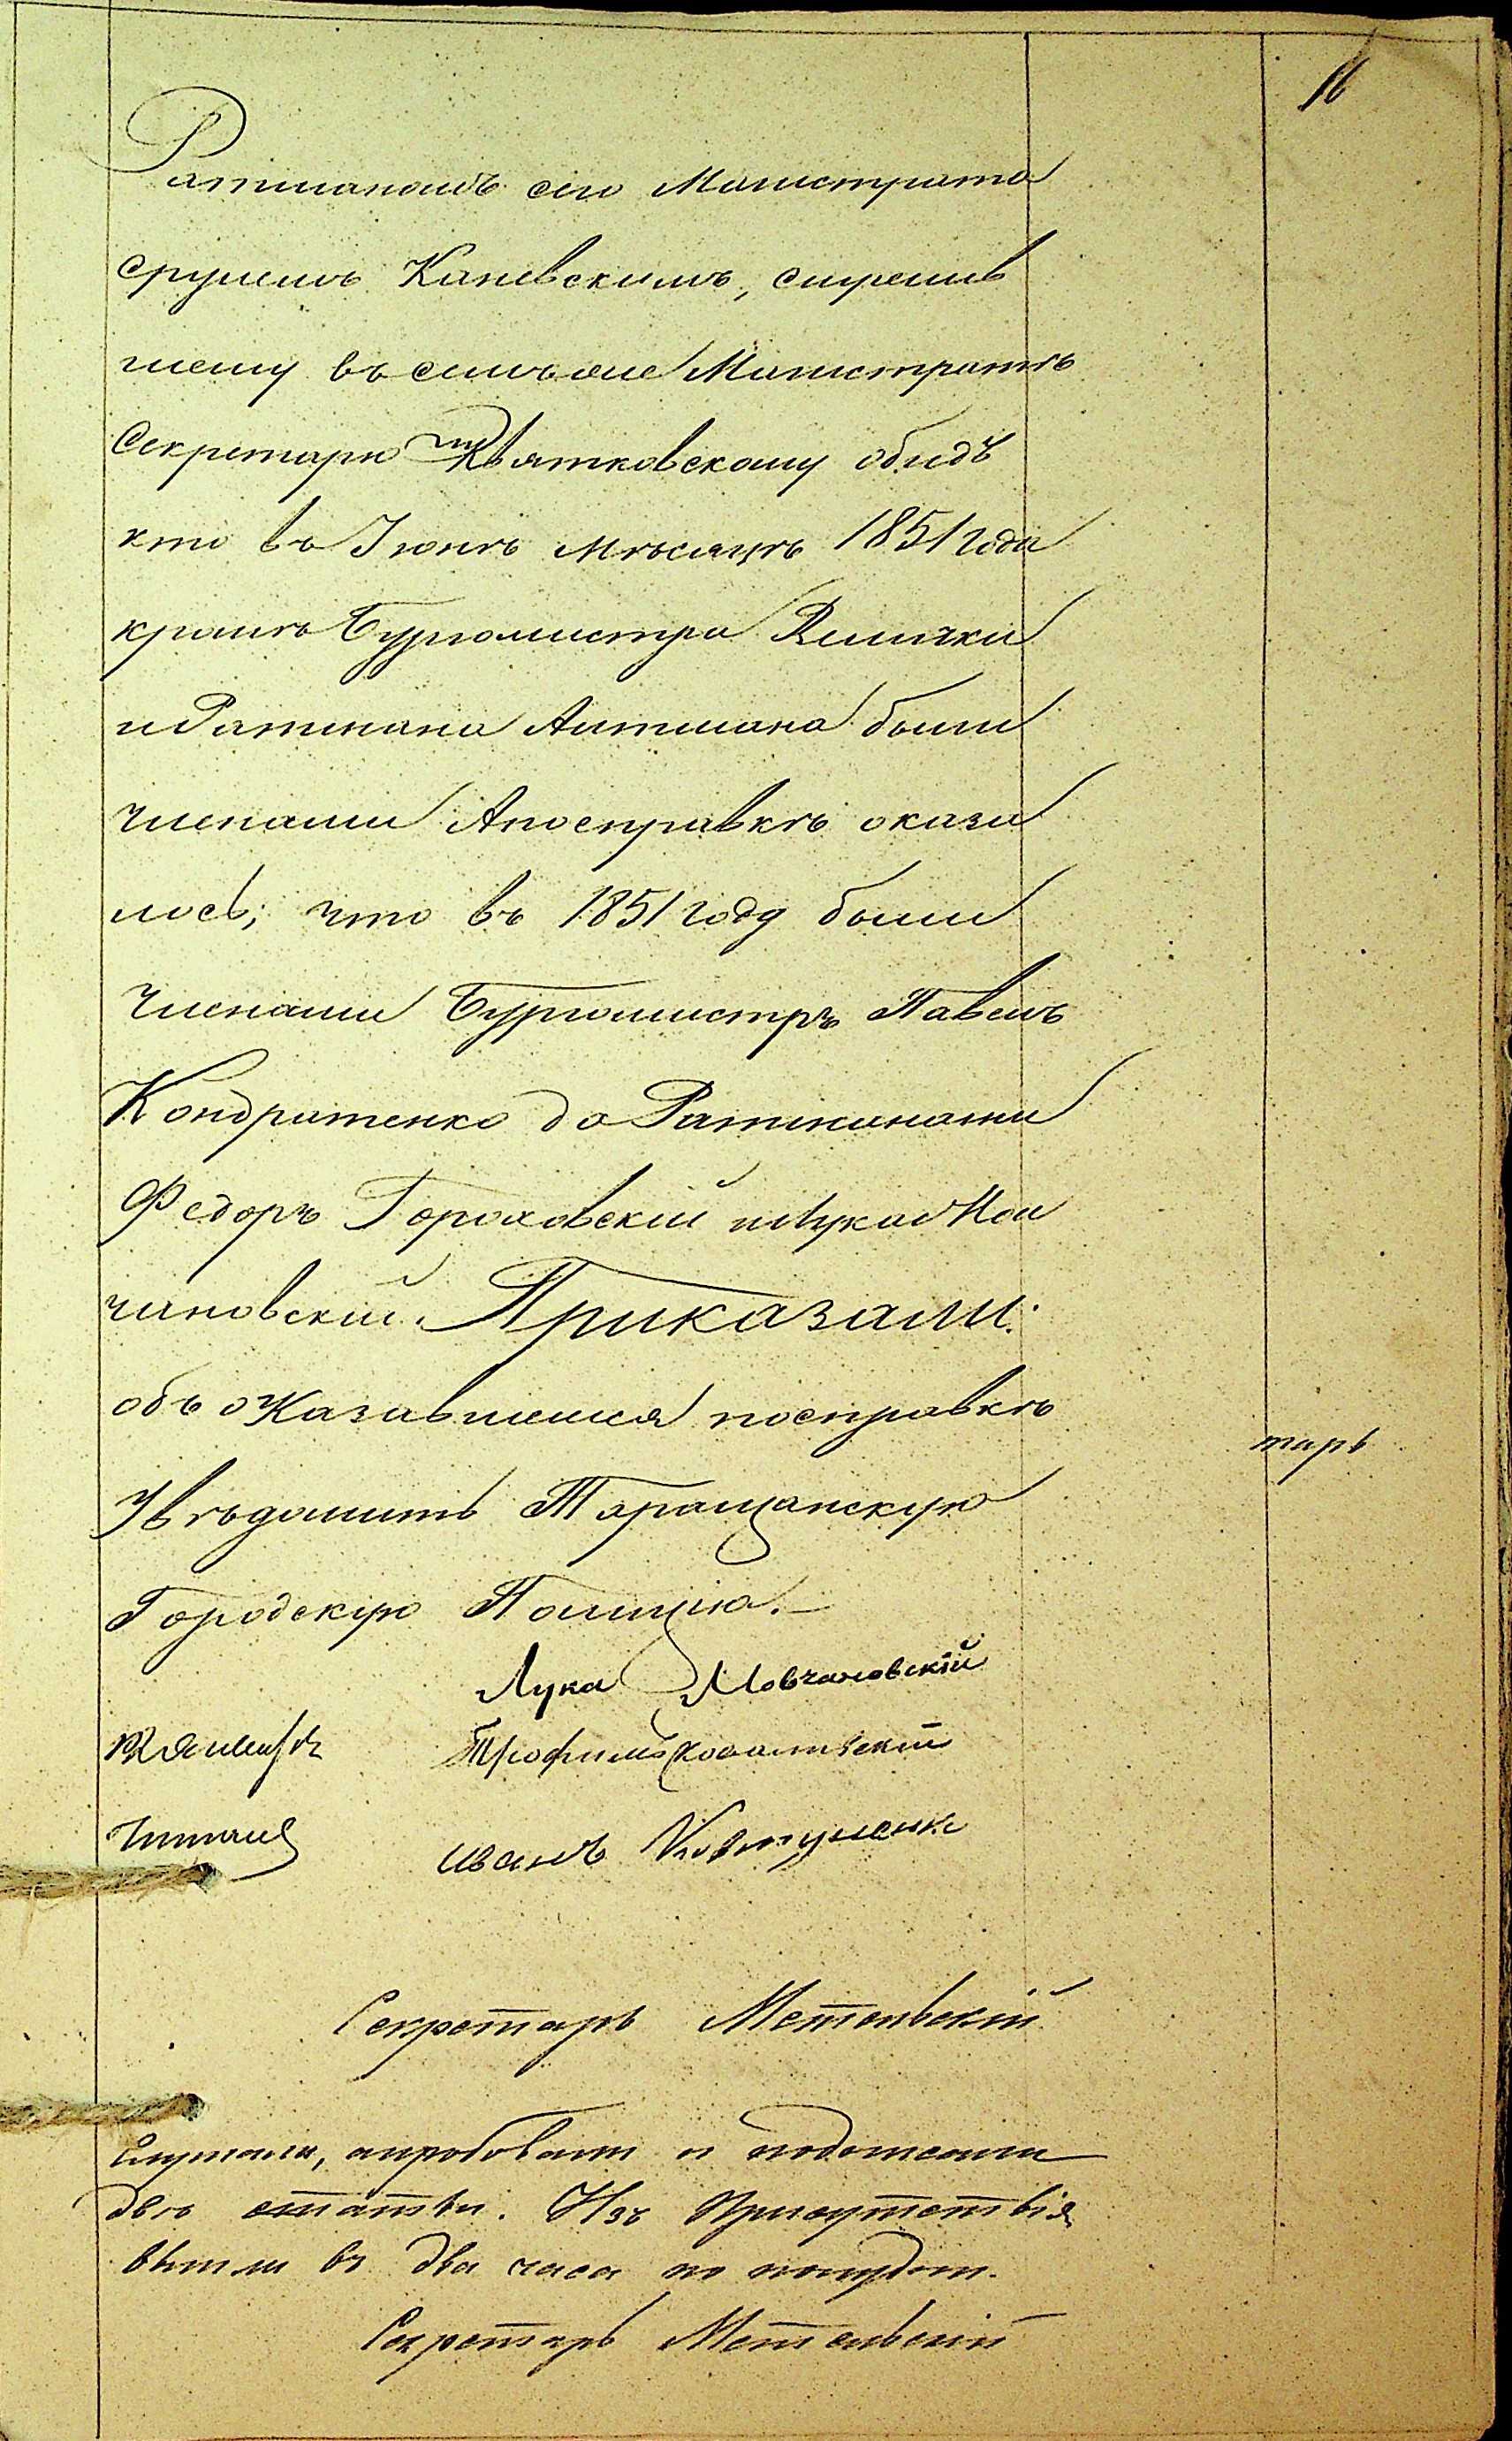 16
Ратманомъ сего Магистрата
Сруlемъ Каневскимъ, служив
шему въ семъ же Магистратѣ
Секретарю Квятковскому обидъ
кто въ Іюнѣ Мѣсяцѣ 1851 года
кромѣ Бургомистра Велички
и Ратмана Литмана были
членами А по справкѣ оказа
лось; что въ 1851 году были
членами Бургомистръ Павелъ
Кондратенко да Ратманами
Федоръ Гороховскій и Лука Мол
чановскій. Приказали:
объ оказавшемся по справкѣ
Увѣдомить Таращанскую
Городскую Полицію.
Лука Мовчановскій
Трофимъ Ковалевскій
Иванъ Ковтуненко
Секретарь Метельскій
тарь
Слушали, апробовали и подписали
двѣ статьи. Изъ Присутствія
вышли въ два часа по полудни.
Секретарь Метельскій